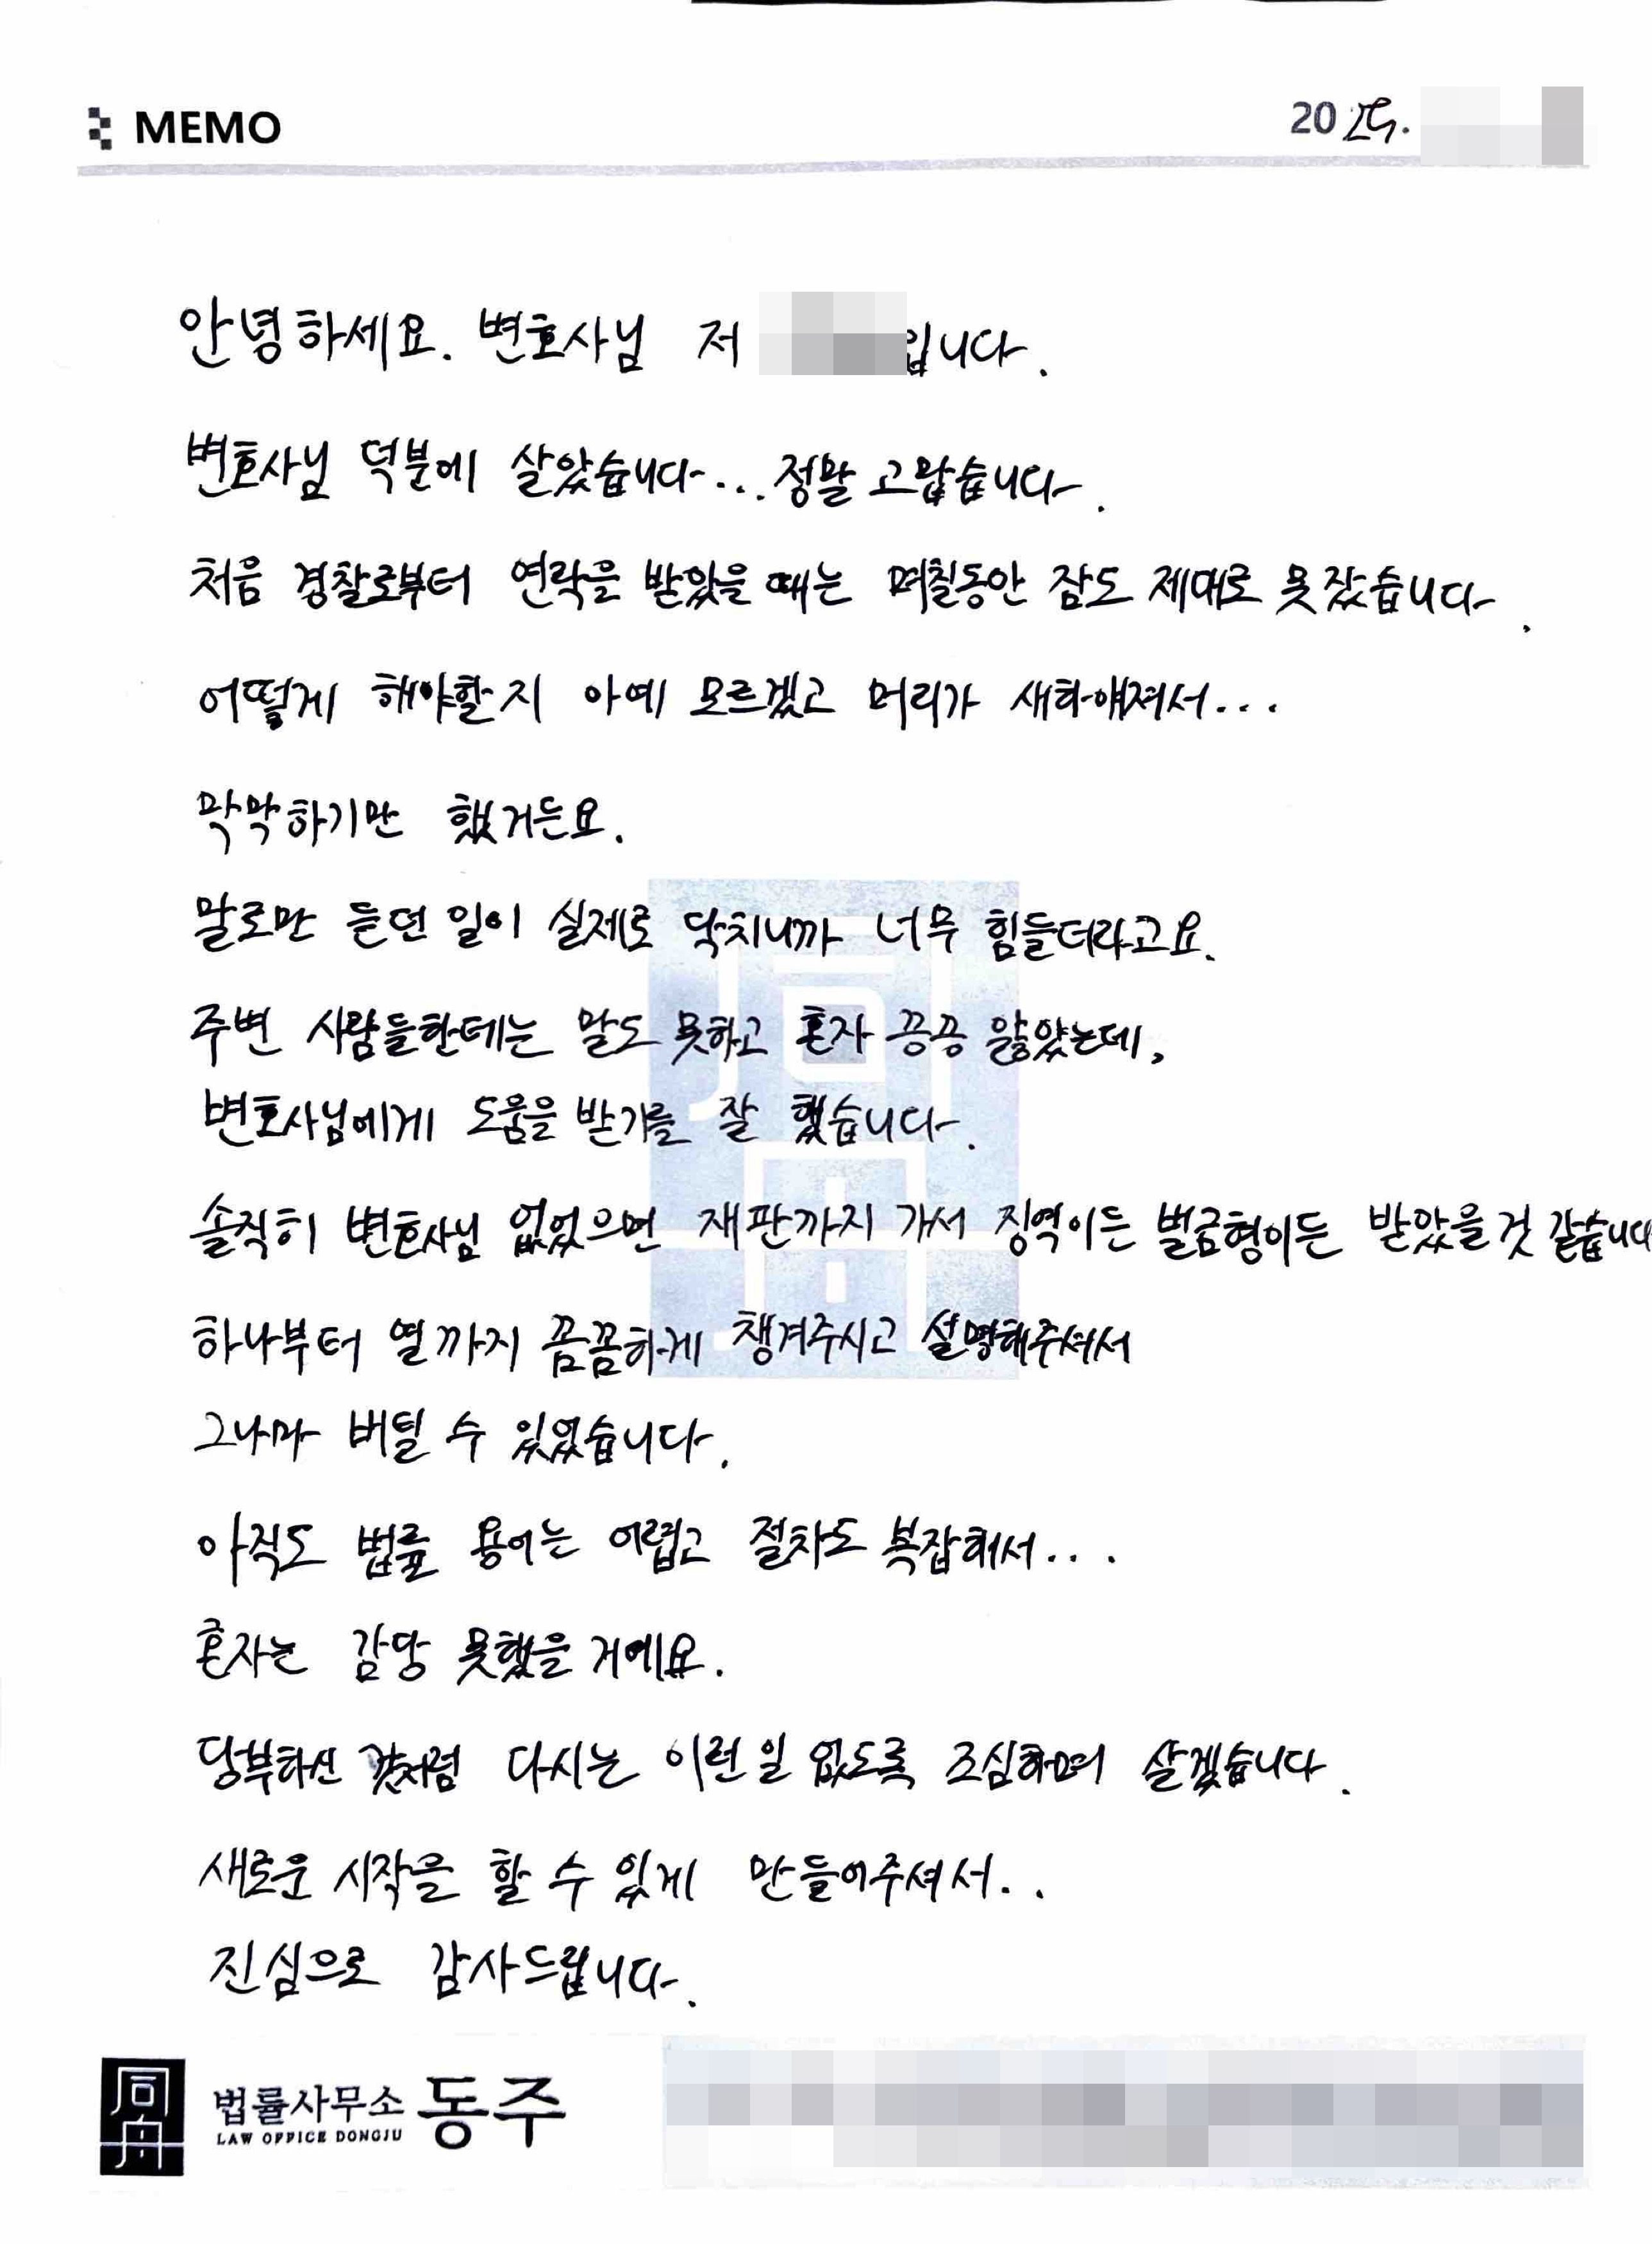 MEMO
2025.
안녕하세요. 변호사님 저 입니다.
변호사님 덕분에 살았습니다... 정말 고맙습니다.
처음 경찰로부터 연락을 받았을 때는 며칠동안 잠도 제대로 못 잤습니다.
어떻게 해야할지 아예 모르겠고 머리가 새하얘져서...
막막하기만 했거든요.
말로만 듣던 일이 실제로 닥치니까 너무 힘들더라고요.
주변 사람들한테는 말도 못하고 혼자 끙끙 앓았는데,
변호사님에게 도움을 받기를 잘 했습니다.
솔직히 변호사님 없었으면 재판까지 가서 징역이든 벌금형이든 받았을것 같습니다
하나부터 열까지 꼼꼼하게 챙겨주시고 설명해주셔서
그나마 버틸 수 있었습니다.
아직도 법률 용어는 어렵고 절차도 복잡해서...
혼자는 감당 못했을 거예요.
당부하신 것처럼 다시는 이런 일 없도록 조심하며 살겠습니다.
새로운 시작을 할 수 있게 만들어주셔서..
진심으로 감사드립니다.
법률사무소 동주
LAW OFFICE DONGJU